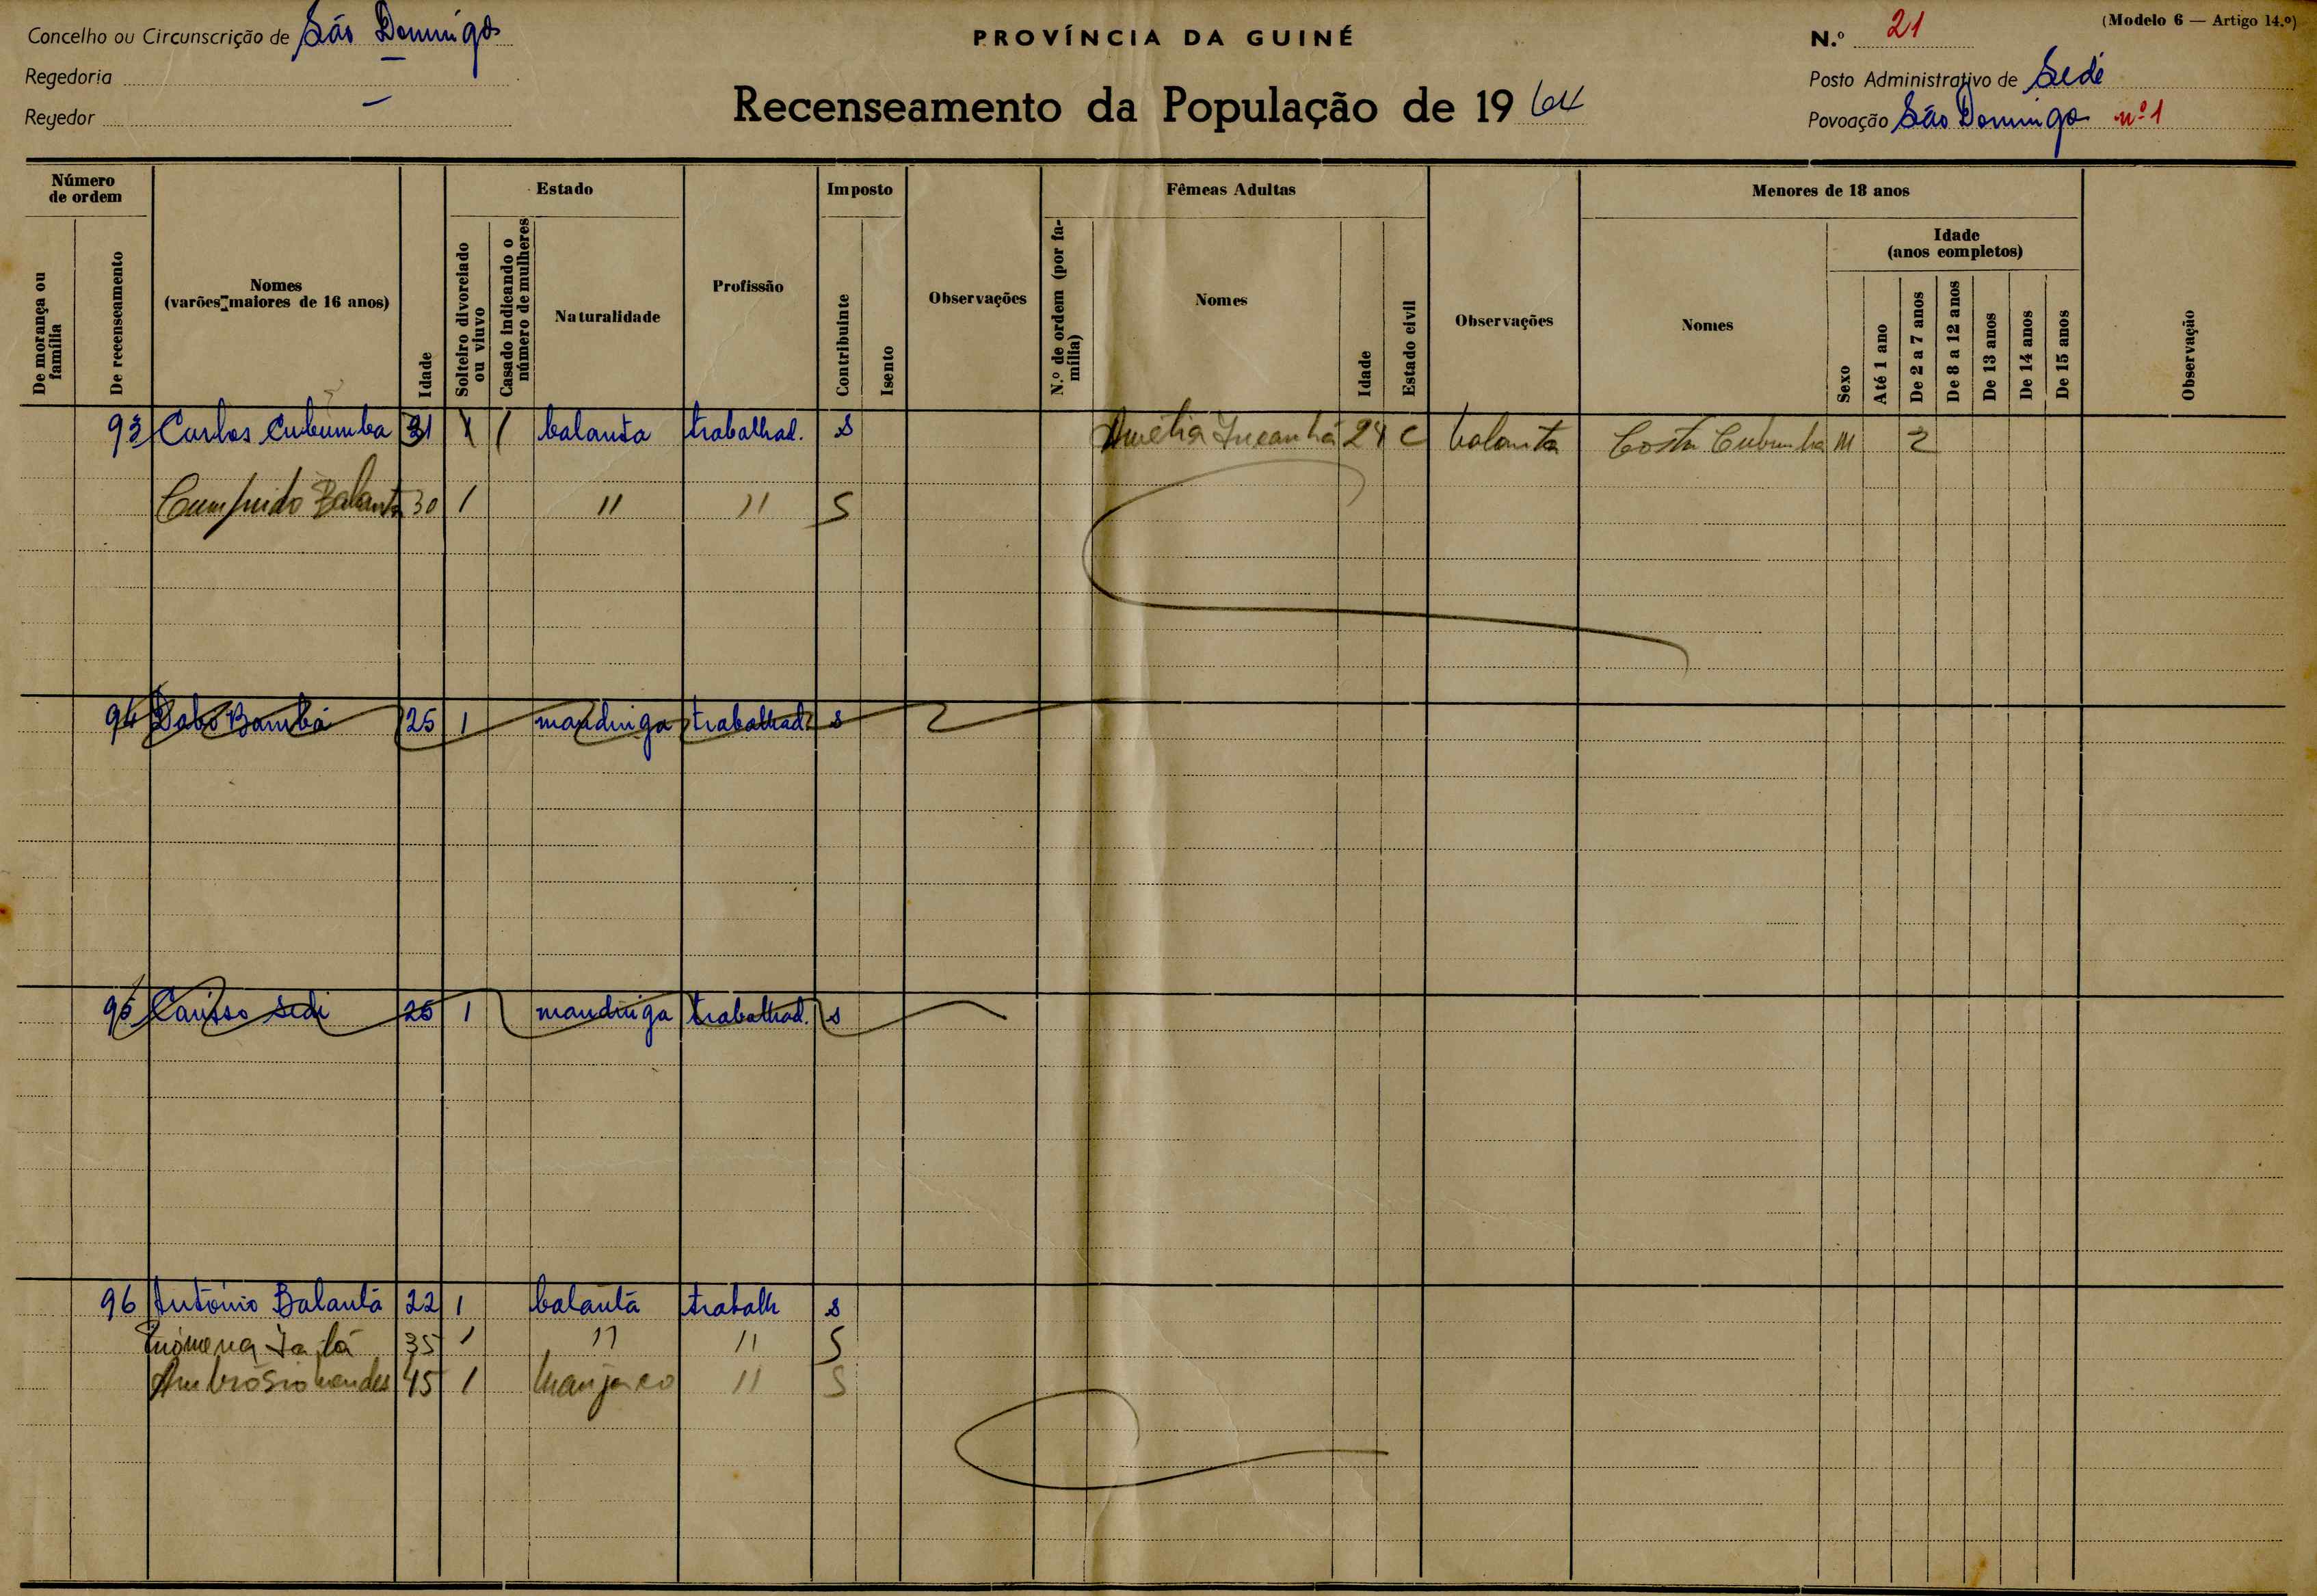 Concelho ou Circunscrição de São Domingos
Regedoria —
Regedor —
PROVÍNCIA DA GUINÉ
Recenseamento da População de 1964
(Modelo 6 — Artigo 14.º)
N.º 21
Posto Administrativo de Sede
Povoação São Domingos nº 1
Número de ordem
De morança ou família
De recenseamento
Nomes (varões maiores de 16 anos)
Idade
Estado
Solteiro divorciado ou viuvo
Casado indicando o número de mulheres
Naturalidade
Profissão
Imposto
Contribuinte
Isento
Observações
Fêmeas Adultas
N.º de ordem (por família)
Nomes
Idade
Estado civil
Observações
Menores de 18 anos
Nomes
Sexo
Idade (anos completos)
Até 1 ano
De 2 a 7 anos
De 8 a 12 anos
De 13 anos
De 14 anos
De 15 anos
Observação
93 Carlos Cubumba 31 1 / balanta trabalhad. s Amélia 24 C balanta Costa Cubumba M 2
Cumprido Balanta 30 1 " " S
94 Dabo Bambá 25 1 mandinga trabalhad. s
95 sedi 25 1 mandinga trabalhad. s
96 António Balantã 22 1 balantã trabalh s
35 1 " " S
Ambrósio Mendes 45 1 Manjaco " S